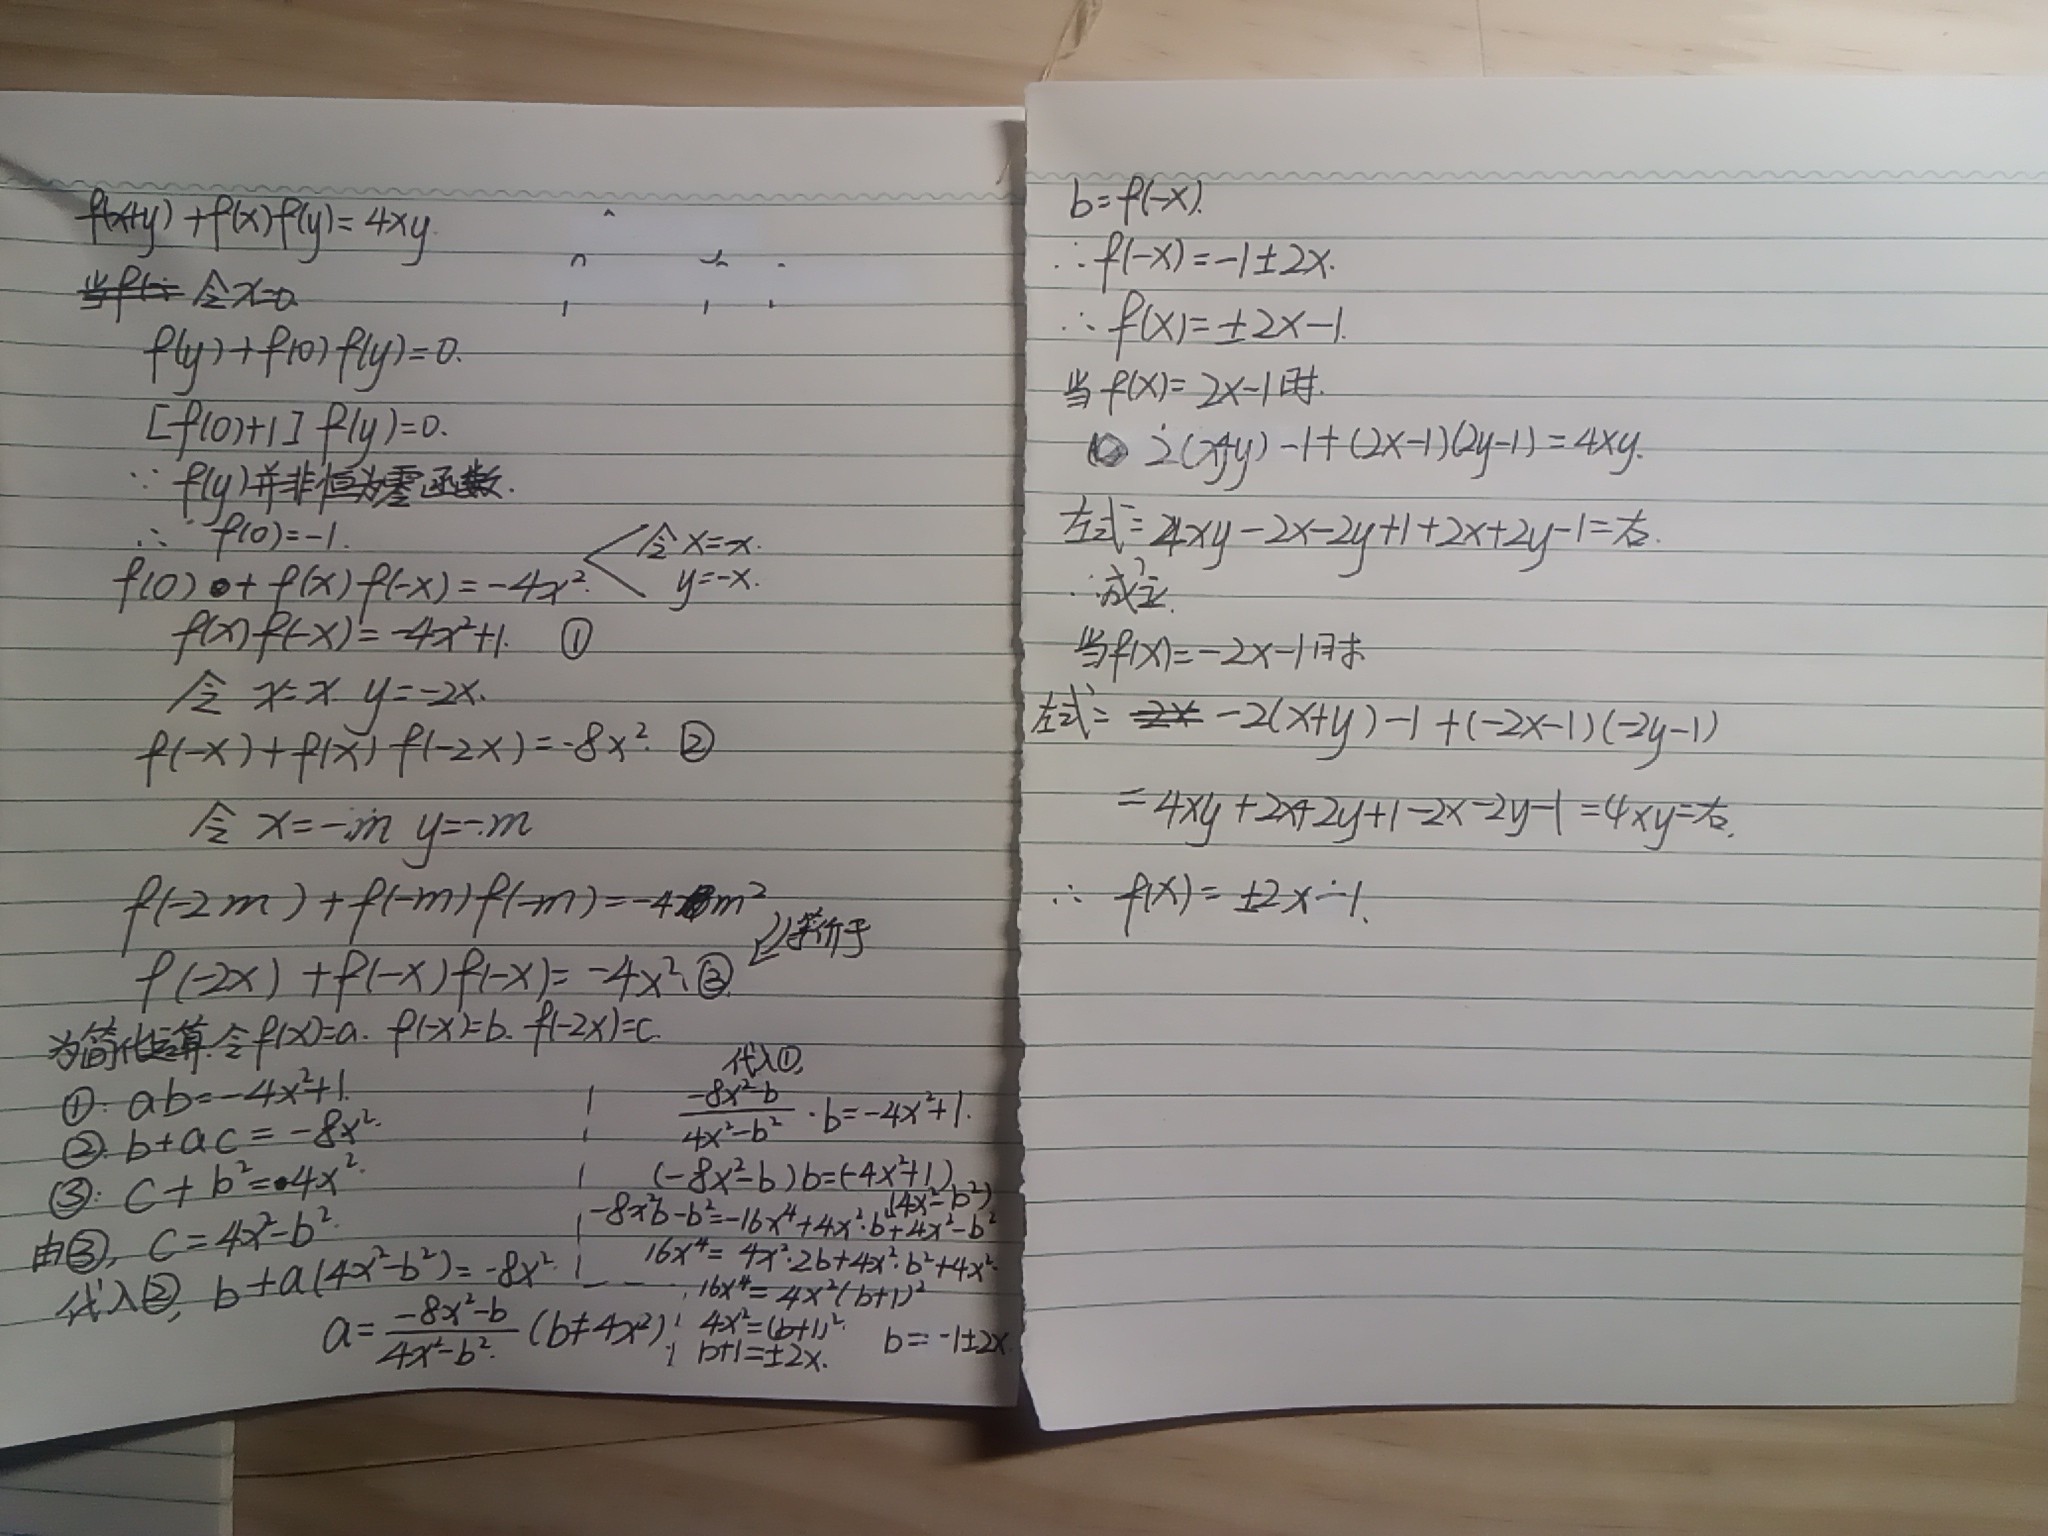 f(x+y)+f(x)f(y)=4xy.
令x=0.
f(y)+f(0)f(y)=0.
[f(0)+1]f(y)=0.
∵ f(y)并非恒为零函数.
∴ f(0)=-1.
f(0)+f(x)f(-x)=-4x². 令x=x. y=-x.
f(x)f(-x)=-4x²+1. ①
令 x=x. y=-2x.
f(-x)+f(x)f(-2x)=-8x². ②
令 x=-m y=-m
f(-2m)+f(-m)f(-m)=-4m²
等价于
f(-2x)+f(-x)f(-x)=-4x². ③
为简化运算.令f(x)=a. f(-x)=b. f(-2x)=c.
①. ab=-4x²+1.
②. b+ac=-8x².
③: c+b²=4x².
由③, c=4x²-b².
代入②, b+a(4x²-b²)=-8x².
a=\frac{-8x²-b}{4x²-b²}. (b≠4x²)
代入①,
\frac{-8x²-b}{4x²-b²}·b=-4x²+1.
(-8x²-b)b=(-4x²+1)(4x²-b²)
-8x²b-b²=-16x⁴+4x²·b²+4x²-b²
16x⁴=4x²·2b+4x²·b²+4x².
16x⁴=4x²(b+1)²
4x²=(b+1)².
b+1=±2x. b=-1±2x.
b=f(-x).
∴f(-x)=-1±2x.
∴ f(x)=±2x-1.
当f(x)=2x-1时.
2(x+y)-1+(2x-1)(2y-1)=4xy.
左式=4xy-2x-2y+1+2x+2y-1=右.
∴成立.
当f(x)=-2x-1时
左式= -2(x+y)-1+(-2x-1)(-2y-1)
=4xy+2x+2y+1-2x-2y-1=4xy=右.
∴ f(x)=±2x-1.